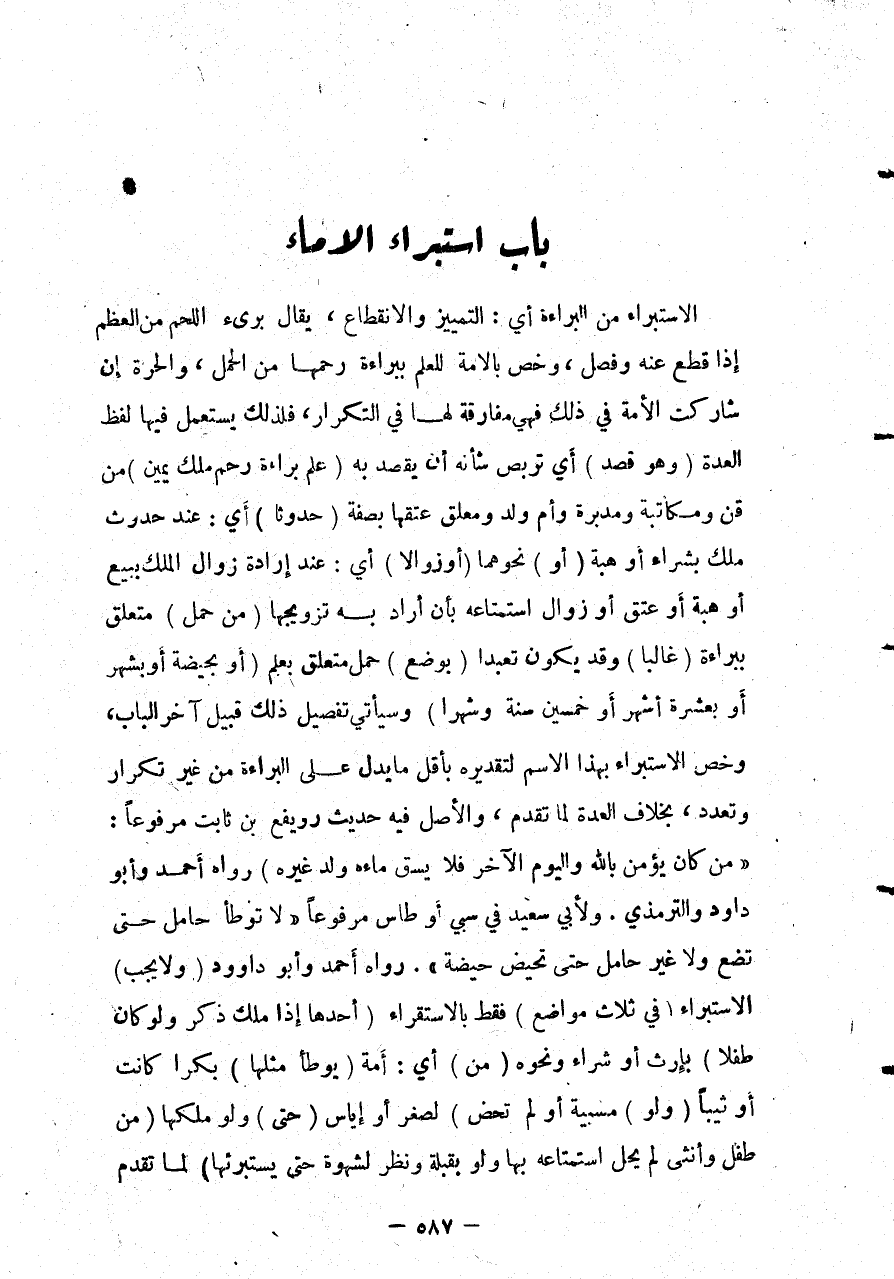 باب استبراء الاماء
الاستبراء من البراءة أي : التمييز والانقطاع ، يقال برىء اللحم من العظم
إذا قطع عنه وفصل ، وخص بالامة للعلم ببراءة رحمها من الحمل ، والحرة إن
شاركت الأمة في ذلك فهي مفارقة لها في التكرار، فلذلك يستعمل فيها لفظ
العدة ( وهو قصد ) أي تربص شأنه أن يقصد به ( علم براءة رحم ملك يمين )من
قن ومكاتبة ومدبرة وأم ولد ومعلق عتقها بصفة ( حدوثا ) أي : عند حدوث
ملك بشراء أو هبة ( أو ) نحوهما (أوزوالا ) أي : عند إرادة زوال الملك ببيع
أو هبة أو عتق أو زوال استمتاعه بأن أراد به تزويجها ( من حمل ) متعلق
ببراءة ( غالبا ) وقد يكون تعبدا ( بوضع ) حمل متعلق بعلم ( أو بحيضة أو بشهر
أو بعشرة أشهر أو خمسين سنة وشهرا ) وسيأتي تفصيل ذلك قبيل آخر الباب،
وخص الاستبراء بهذا الاسم لتقديره بأقل مايدل على البراءة من غير تكرار
وتعدد ، بخلاف العدة لما تقدم ، والأصل فيه حديث رويفع بن ثابت مرفوعاً :
« من كان يؤمن بالله واليوم الآخر فلا يسق ماءه ولد غيره ) رواه أحمد وأبو
داود والترمذي . ولأبي سعيد في سبي أو طاس مرفوعاً « لا توطأ حامل حتى
تضع ولا غير حامل حتى تحيض حيضة » . رواه أحمد وأبو داوود ( ولايجب)
الاستبراء ( في ثلاث مواضع ) فقط بالاستقراء ( أحدها إذا ملك ذكر ولوكان
طفلا ) بإرث أو شراء ونحوه ( من ) أي : أمة ( يوطأ مثلها ) بكرا كانت
أو ثيباً ( ولو ) مسبية أو لم تحض ) لصغر أو إياس ( حتى ) ولو ملكها ( من
طفل وأنثى لم يحل استمتاعه بها ولو بقبلة ونظر لشهوة حتى يستبرئها) لما تقدم
— ٥٨٧ —